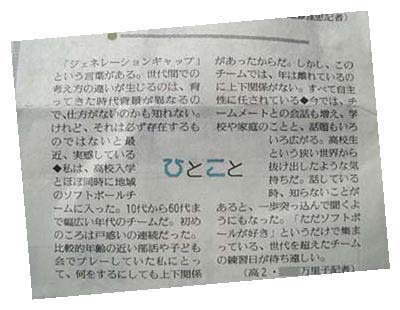 記者）
「ジェネレーションギャップ」
という言葉がある。世代間での
考え方の違いが生じるのは、育
ってきた時代背景が異なるの
で、仕方がないのかも知れない。
けれど、それは必ず存在するも
のではないと最
近、実感している
◆私は、高校入学
とほぼ同時に地域
のソフトボールチ
ームに入った。10代から60代ま
で幅広い年代のチームだ。初め
のころは戸惑いの連続だった。
比較的年齢の近い部活や子ども
会でプレーしていた私にとっ
て、何をするにしても上下関係
ひとこと
があったからだ。しかし、この
チームでは、年は離れているの
に上下関係がない。すべて自主
性に任されている◆今では、チ
ームメートとの会話も増え、学
校や家庭のことと、話題もいろ
いろ広がる。高校生
という狭い世界から
抜け出したような気
持ちだ。話している
時、知らないことが
あると、一歩突っ込んで聞くよ
うにもなった。「ただソフトボ
ールが好き」というだけで集ま
っている、世代を超えたチーム
の練習日が待ち遠しい。
（高２・万里子記者）